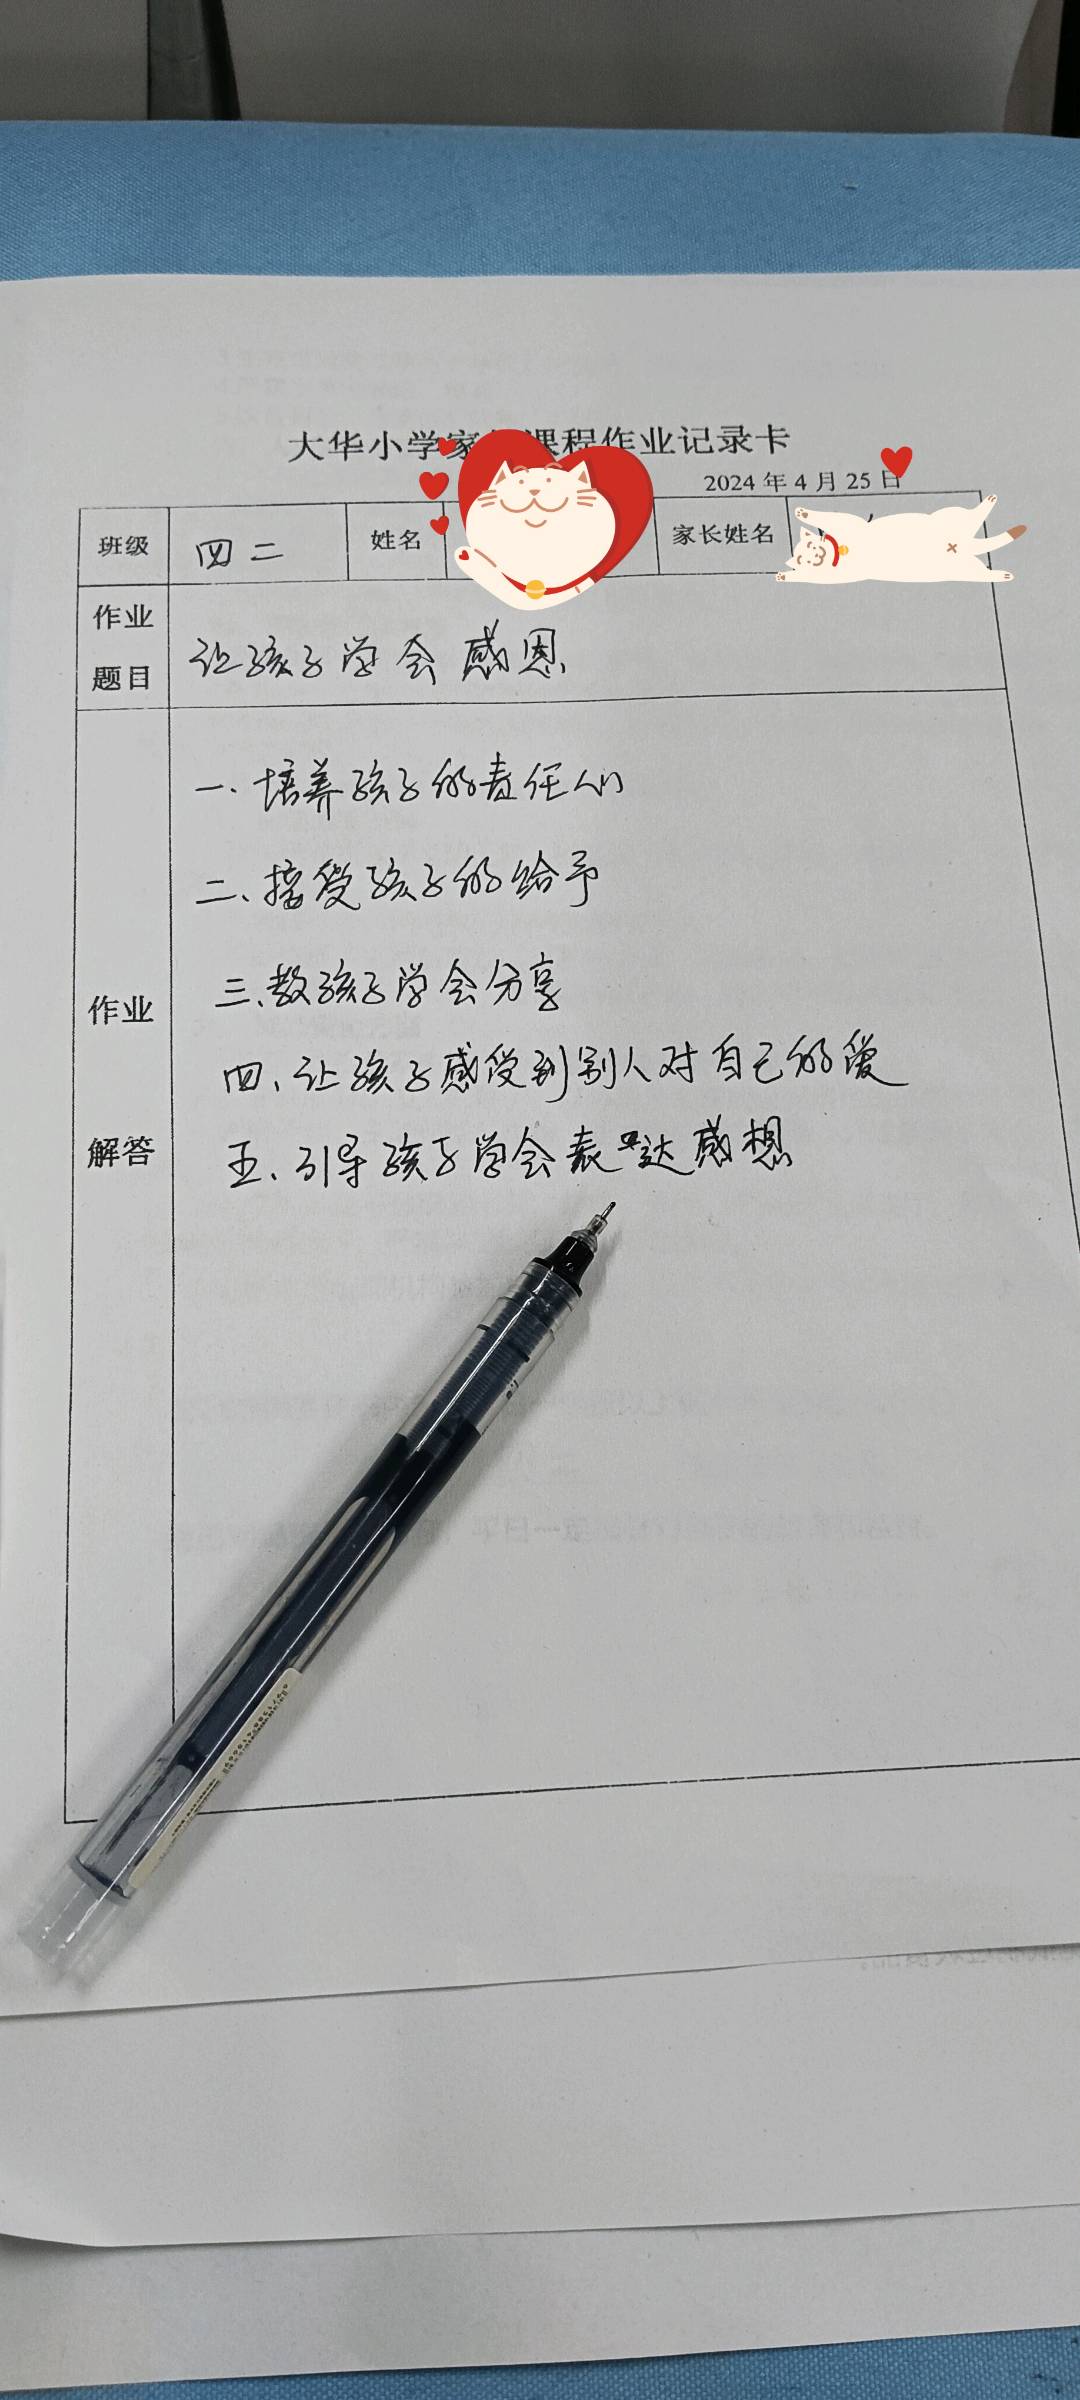 大华小学家 课程作业记录卡
2024 年 4 月 25 日
班级 四二 姓名 家长姓名
作业题目 让孩子学会感恩
作业解答
一、培养孩子的责任心
二、接受孩子的给予
三、教孩子学会分享
四、让孩子感受到别人对自己的爱
五、引导孩子学会表达感想